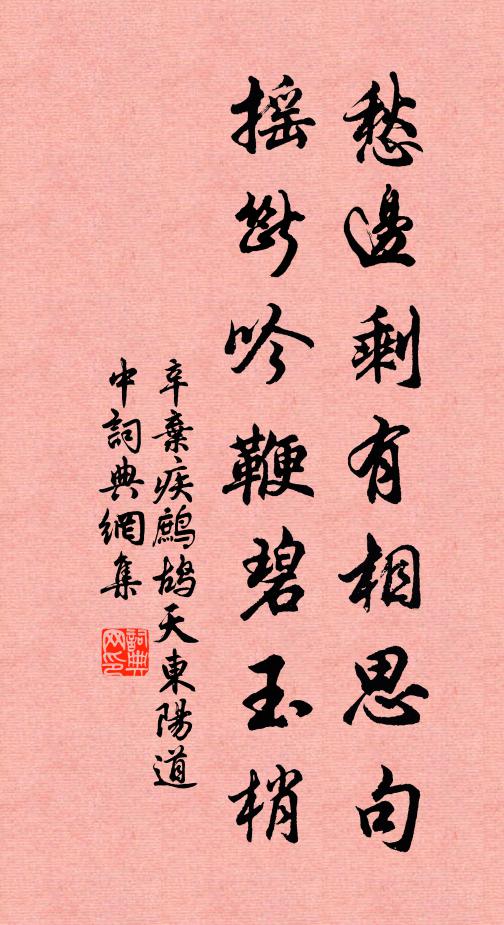 愁邊剩有相思句
搖斷吟鞭碧玉梢
辛棄疾鷓鴣天東陽道
中詞典網集
詞典網印